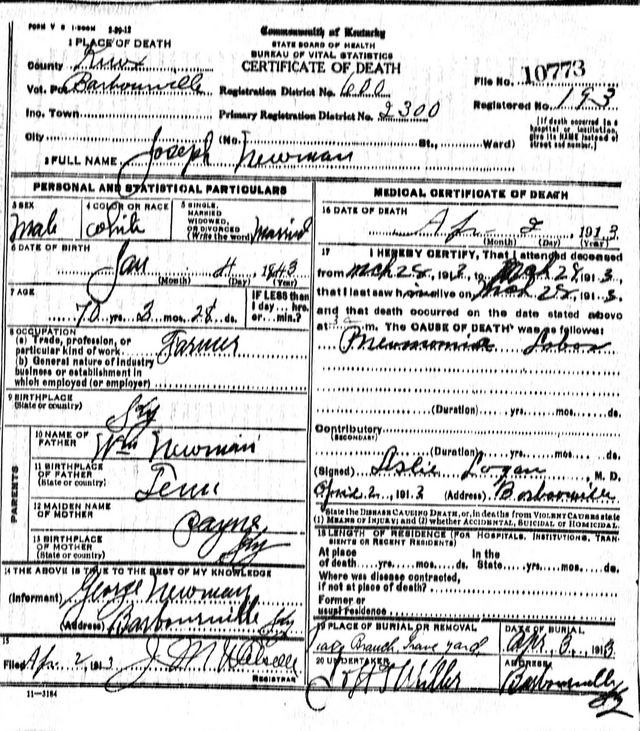 FORM V S 1-500M 2-29-12
Commonwealth of Kentucky
STATE BOARD OF HEALTH
BUREAU OF VITAL STATISTICS
CERTIFICATE OF DEATH
1 PLACE OF DEATH
County Knox
Vot. Pct Barbourville Registration District No. 600
File No. 10773
Inc. Town Primary Registration District No. 2300
Registered No. 193
City (No. St., Ward)
[If death occurred in a hospital or institution, give its NAME instead of street and number.]
2 FULL NAME Joseph Newman
PERSONAL AND STATISTICAL PARTICULARS
3 SEX
Male
4 COLOR OR RACE
White
5 SINGLE, MARRIED WIDOWED, OR DIVORCED (Write the word)
Married
6 DATE OF BIRTH
Jan 4 1843
(Month) (Day) (Year)
7 AGE
70 yrs. 2 mos. 28 ds.
IF LESS than 1 day... hrs. or... min.?
8 OCCUPATION
(a) Trade, profession, or particular kind of work Farmer
(b) General nature of industry business or establishment in which employed (or employer)
9 BIRTHPLACE
(State or country) Ky
PARENTS
10 NAME OF FATHER
Wm Newman
11 BIRTHPLACE OF FATHER
(State or country)
Tenn
12 MAIDEN NAME OF MOTHER
Payne
13 BIRTHPLACE OF MOTHER
(State or country) Ky
14 THE ABOVE IS TRUE TO THE BEST OF MY KNOWLEDGE
(Informant) George Newman
(Address) Barbourville Ky
15
Filed Apr 2, 1913 J. M.
REGISTRAR
11-3184
MEDICAL CERTIFICATE OF DEATH
16 DATE OF DEATH
Apr 2, 1913
(Month) (Day) (Year)
17 I HEREBY CERTIFY, That I attended deceased
from Mch 28, 1913, to Mch 28, 1913,
that I last saw him alive on Mch 28, 1913,
and that death occurred on the date stated above
at m. The CAUSE OF DEATH was as follows:
Pneumonia Lobar
(Duration) yrs. mos. ds.
Contributory
(SECONDARY)
(Duration) yrs. mos. ds.
(Signed) Leslie Logan, M. D.
April 2, 1913 (Address) Barbourville
State the DISEASE CAUSING DEATH, or, in deaths from VIOLENT CAUSES state (1) MEANS OF INJURY; and (2) whether ACCIDENTAL, SUICIDAL or HOMICIDAL.
18 LENGTH OF RESIDENCE (FOR HOSPITALS, INSTITUTIONS, TRANSIENTS OR RECENT RESIDENTS)
At place of death yrs. mos. ds. In the State yrs. mos. ds.
Where was disease contracted, if not at place of death?
Former or usual residence
19 PLACE OF BURIAL OR REMOVAL
Branch Grave yard
DATE OF BURIAL
Apr. 3, 1913
20 UNDERTAKER
Miller
ADDRESS
Barbourville Ky